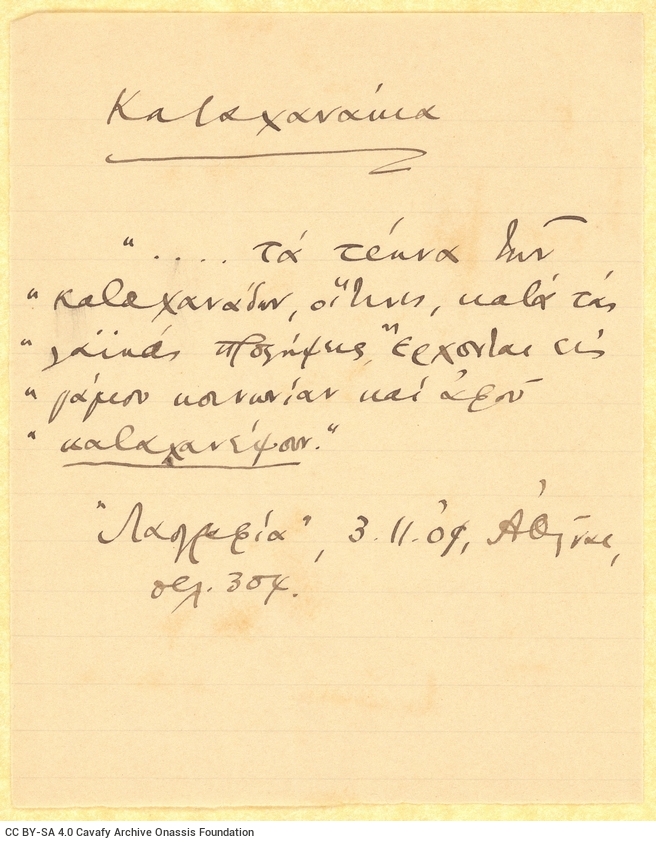 Καταχανάκια
".... τά τέκνα τῶν
" καταχανάδων, οἵτινες, κατά τάς
" λαϊκάς προλήψεις, ἔρχονται εἰς
" γάμου κοινωνίαν καί ἀφοῦ
" καταχανέψουν."
"Λαογραφία", 3.11.09, Ἀθῆναι,
σελ. 304.
CC BY-SA 4.0 Cavafy Archive Onassis Foundation